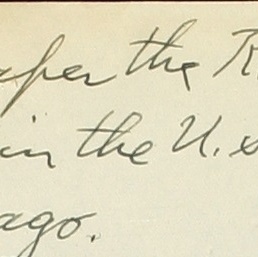 aper the R
in the U.S
ago.